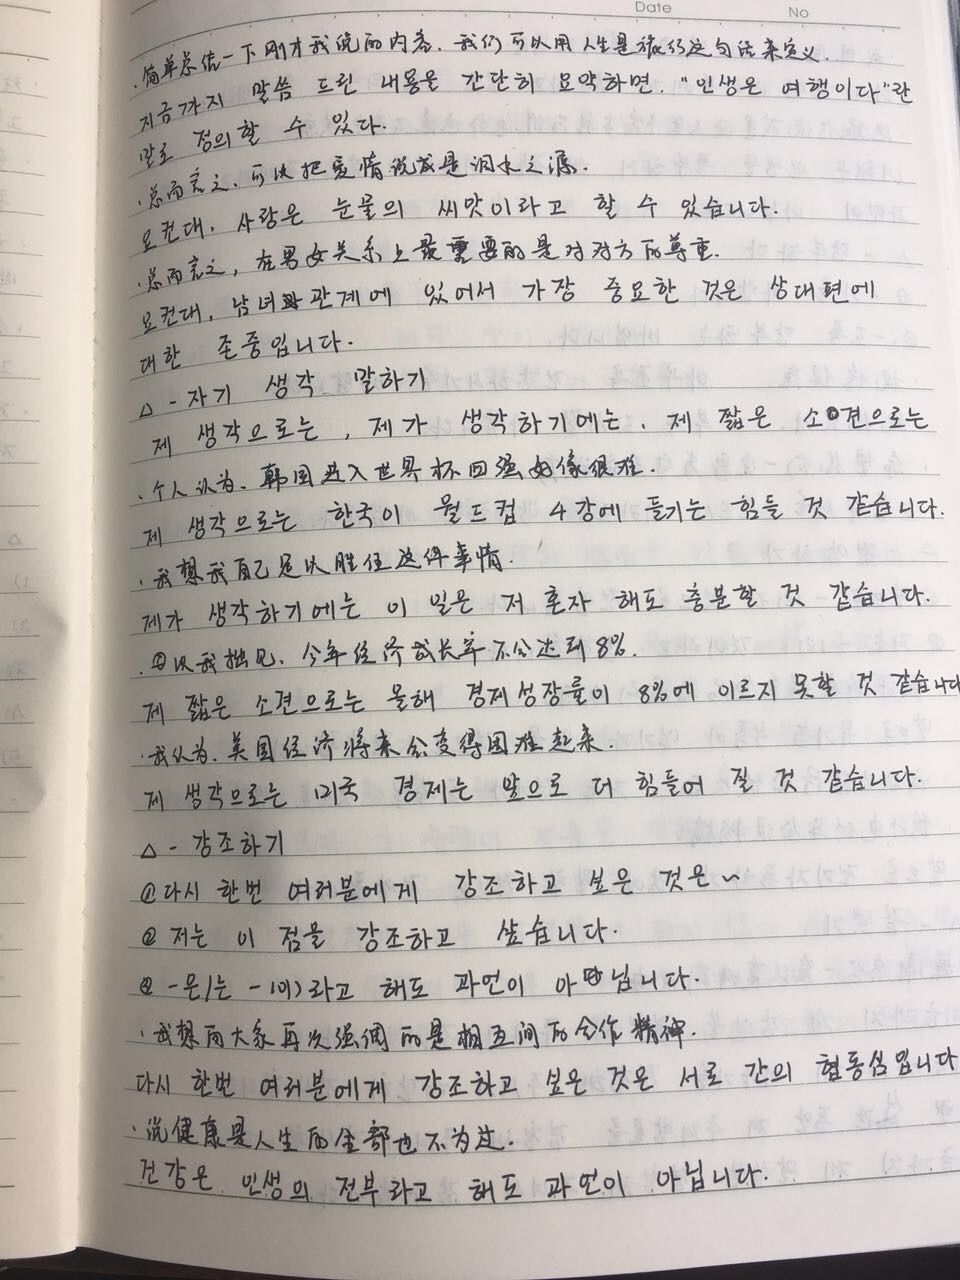 Date No
·简单总结一下刚才我说的内容,我们可以用人生是旅行这句话来定义.
지금까지 말씀 드린 내용을 간단히 요약하면, "인생은 여행이다"란
말로 정의할 수 있다.
·总而言之,可以把爱情说成是泪水之源.
요컨대, 사랑은 눈물의 씨앗이라고 할 수 있습니다.
·总而言之,在男女关系上最重要的是对对方的尊重.
요컨대, 남녀 관계에 있어서 가장 중요한 것은 상대편에
대한 존중입니다.
△ - 자기 생각 말하기
제 생각으로는, 제가 생각하기에는, 제 짧은 소견으로는
·个人认为,韩国进入世界杯四强好像很难.
제 생각으로는 한국이 월드컵 4강에 들기는 힘들 것 같습니다.
·我想我自己足以胜任这件事情.
제가 생각하기에는 이 일은 저 혼자 해도 충분할 것 같습니다.
·以我拙见,今年经济成长率不会达到8%.
제 짧은 소견으로는 올해 경제성장률이 8%에 이르지 못할 것 같습니다
·我认为,美国经济将来会变得困难起来.
제 생각으로는 미국 경제는 앞으로 더 힘들어 질 것 같습니다.
△ - 강조하기
①다시 한번 여러분에게 강조하고 싶은 것은~
② 저는 이 점을 강조하고 싶습니다.
③ -은/는 -(이)라고 해도 과언이 아닙니다.
·我想向大家再次强调的是相互间的合作精神.
다시 한번 여러분에게 강조하고 싶은 것은 서로 간의 협동심입니다
·说健康是人生的全部也不为过.
건강은 인생의 전부라고 해도 과언이 아닙니다.